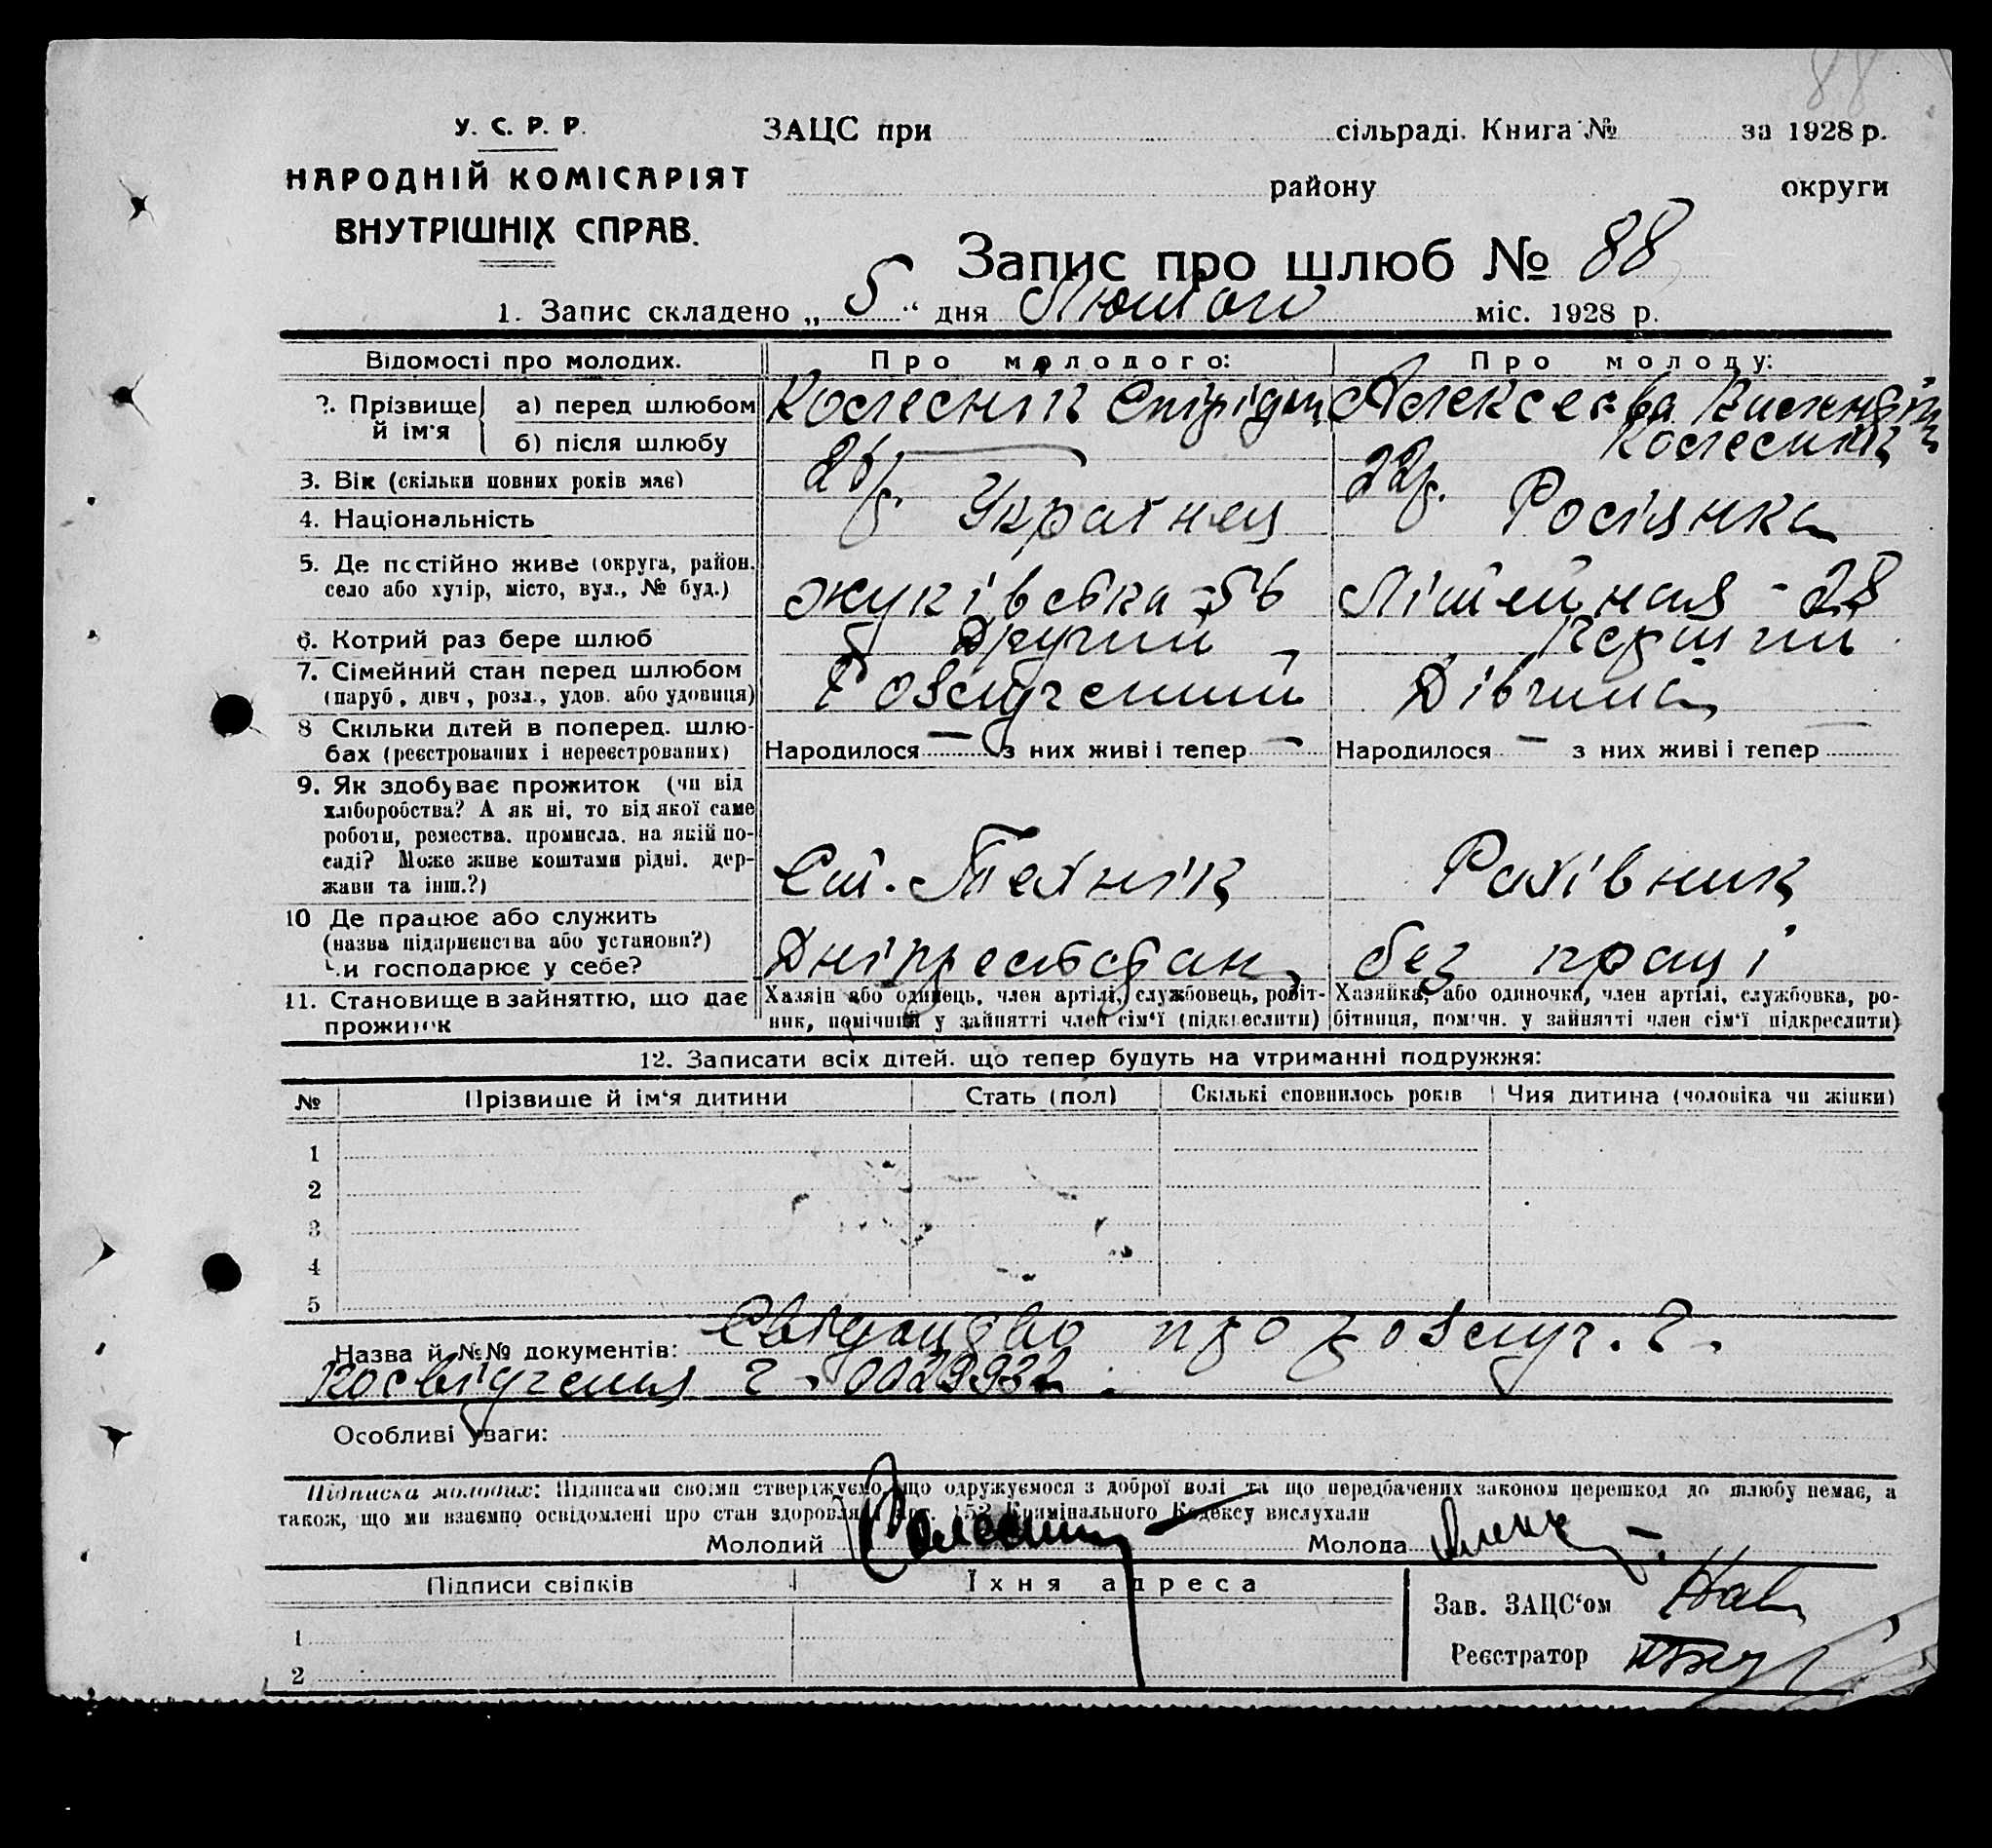 88
У. С. Р. Р.
НАРОДНІЙ КОМІСАРІЯТ
ВНУТРІШНІХ СПРАВ.
ЗАЦС при сільраді. Книга № за 1928 р.
району округи
Запис про шлюб № 88
1. Запис складено „ 5 “ дня Лютого міс. 1928 р.
Відомості про молодих. Про молодого: Про молоду:
2. Прізвище й ім'я а) перед шлюбом Колеснік Спірідон Алексеєва
б) після шлюбу — Колеснік
3. Вік (скільки повних років має) 26 р. 22 р.
4. Національність Украінец Росіянка
5. Де постійно живе (округа, район, село або хутір, місто, вул., № буд.) Жуківська - 56 Літейная - 28
6. Котрий раз бере шлюб Другий Перший
7. Сімейний стан перед шлюбом (паруб., дівч., розл., удов. або удовиця) Розлучений Дівчина
8 Скільки дітей в поперед. шлюбах (реєстрованих і нереєстрованих) Народилося — з них живі і тепер — Народилося — з них живі і тепер
9. Як здобуває прожиток (чи від
хліборобства? А як ні, то від якої саме
роботи, ремества, промисла, на якій по-
саді? Може живе коштами рідні, дер-
жави та інш.?) Ст. Технік Рахівник
10 Де працює або служить
(назва підприємства або установи?)
Чи господарює у себе? без праці
11. Становище в зайняттю, що дає прожиток
Хазяїн або одинець, член артілі, службовець, робіт-
ник, помічний у зайнятті член сім'ї (підкреслити)
Хазяйка, або одиночка, член артілі, службовка, ро-
бітниця, помічн. у зайнятті член сім'ї підкреслити)
12. Записати всіх дітей, що тепер будуть на утриманні подружжя:
№ Прізвище й ім'я дитини Стать (пол) Скількі сповнилось років Чия дитина (чоловіка чи жінки)
1
2
3
4
5
Назва й №№ документів: Свідоцтво про розлуч. 2.
Посвідчення 2 - 0029932.
Особливі уваги:
Підписка молодих: Підписами своїми стверджуємо, що одружуємося з доброї волі та що передбачених законом перешкод до шлюбу немає, а
також, що ми взаємно освідомлені про стан здоровля і арт. 153 Кримінального Кодексу вислухали
Молодий Колесник Молода
Підписи свідків Їхня адреса
Зав. ЗАЦС'ом
1
Реєстратор
2